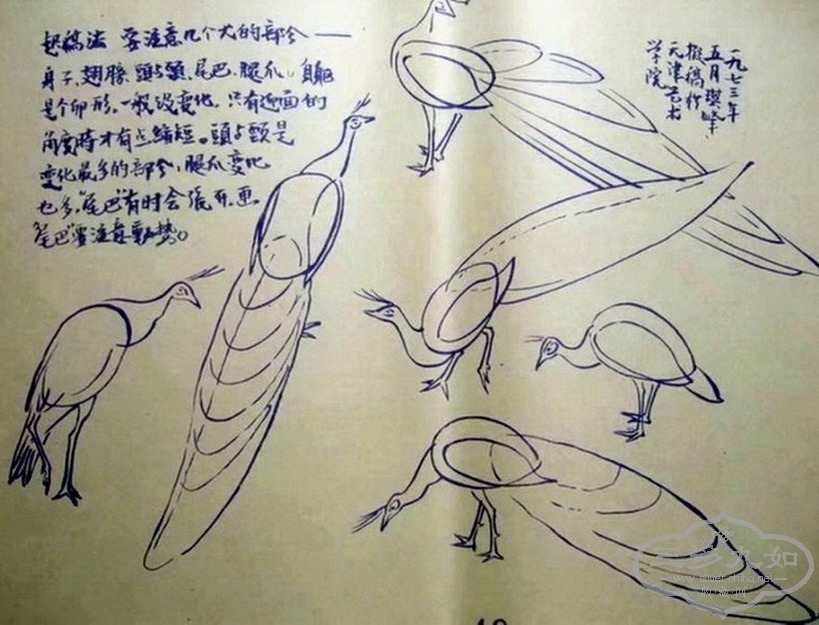 起稿法 要注意几个大的部分——
身子、翅膀、頭与頸、尾巴、腿爪。身軀
是个卵形，一般没变化，只有迎面的
角度時才有点縮短。頭与頸是
变化最多的部分，腿爪变化
也多，尾巴有时会張开，更
尾巴要注意動势。
一九七三年
五月
擬稿於
天津艺术
学院
九如